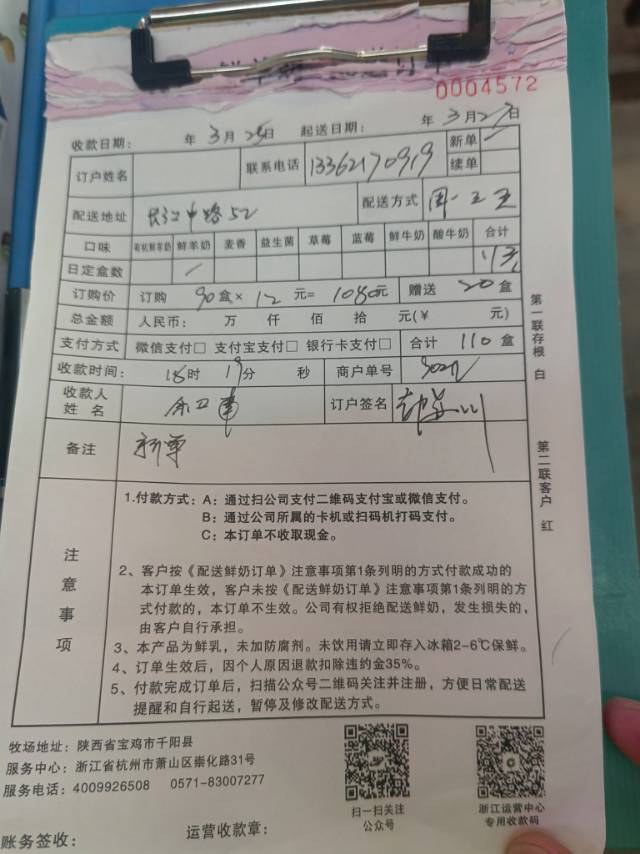 0004572
收款日期： 年 3月 25日 起送日期： 年 3月27日 新单
订户姓名 联系电话 13362170919 续单
配送地址 长江中路52 配送方式 周一三五
口味 有机鲜羊奶 鲜羊奶 麦香 益生菌 草莓 蓝莓 鲜牛奶 酸牛奶 合计
日定盒数
订购价 订购 90 盒× 12 元= 1080元 赠送 20 盒
总金额 人民币： 万 仟 佰 拾 元(￥ 元)
支付方式 微信支付□ 支付宝支付□ 银行卡支付□ 合计 110 盒
收款时间： 18时 19分 秒 商户单号
收款人姓名 订户签名
备注 新单
注意事项
1.付款方式：A：通过扫公司支付二维码支付宝或微信支付。
B：通过公司所属的卡机或扫码机打码支付。
C：本订单不收取现金。
2、客户按《配送鲜奶订单》注意事项第1条列明的方式付款成功的
本订单生效，客户未按《配送鲜奶订单》注意事项第1条列明的方
式付款的，本订单不生效。公司有权拒绝配送鲜奶，发生损失的，
由客户自行承担。
3、本产品为鲜乳，未加防腐剂。未饮用请立即存入冰箱2-6℃保鲜。
4、订单生效后，因个人原因退款扣除违约金35%。
5、付款完成订单后，扫描公众号二维码关注并注册，方便日常配送
提醒和自行起送，暂停及修改配送方式。
第一联存根 白
第二联客户 红
牧场地址：陕西省宝鸡市千阳县
服务中心：浙江省杭州市萧山区崇化路31号
服务电话：4009926508 0571-83007277
扫一扫关注
公众号
浙江运营中心
专用收款码
账务签收：
运营收款章：